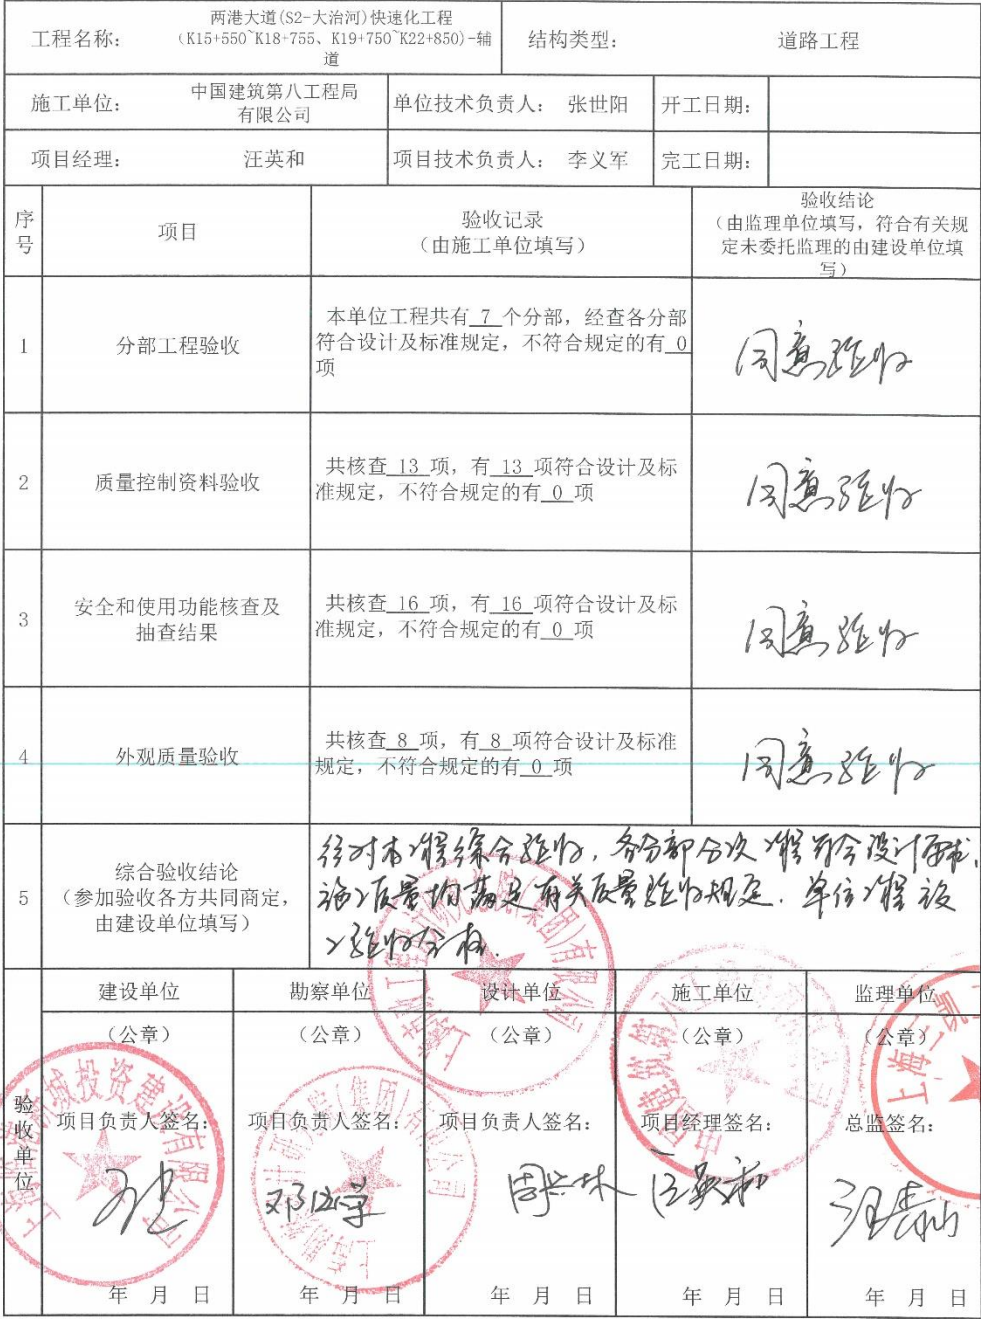 工程名称：
两港大道(S2-大治河)快速化工程
(K15+550~K18+755、K19+750~K22+850)-辅
道
结构类型：
道路工程
施工单位：
中国建筑第八工程局
有限公司
单位技术负责人：
张世阳
开工日期：
项目经理：
汪英和
项目技术负责人：
李义军
完工日期：
序
号
项目
验收记录
(由施工单位填写)
验收结论
(由监理单位填写，符合有关规
定未委托监理的由建设单位填
写)
1
分部工程验收
本单位工程共有 7 个分部，经查各分部
符合设计及标准规定，不符合规定的有 0
项
同意验收
2
质量控制资料验收
共核查 13 项，有 13 项符合设计及标
准规定，不符合规定的有 0 项
同意验收
3
安全和使用功能核查及
抽查结果
共核查 16 项，有 16 项符合设计及标
准规定，不符合规定的有 0 项
同意验收
4
外观质量验收
共核查 8 项，有 8 项符合设计及标准
规定，不符合规定的有 0 项
同意验收
5
综合验收结论
(参加验收各方共同商定，
由建设单位填写)
经对本工程综合验收，各分部分次工程符合设计要求，
施工质量均满足有关质量验收规定．单位工程竣
工验收合格．
验
收
单
位
建设单位
(公章)
项目负责人签名：
年 月 日
勘察单位
(公章)
项目负责人签名：
年 月 日
设计单位
(公章)
项目负责人签名：
周兴林
年 月 日
施工单位
(公章)
项目经理签名：
汪英和
年 月 日
监理单位
(公章)
总监签名：
年 月 日